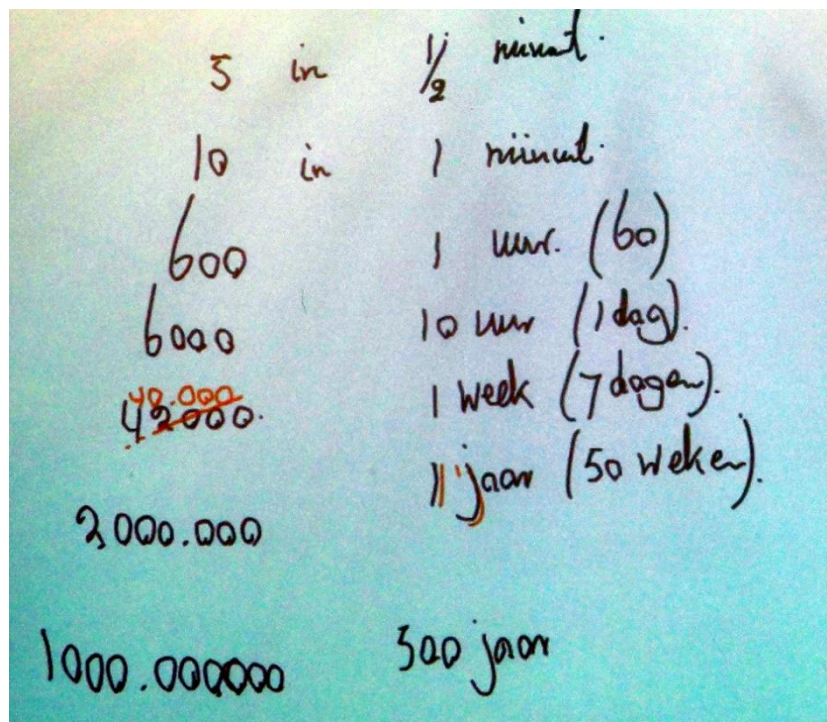 5 in 1/2 minuut.
10 in 1 minuut.
600 1 uur. (60)
6000 10 uur (1 dag).
40.000
42000. 1 week (7 dagen).
1 jaar (50 weken).
2000.000
1000.000000 500 jaar